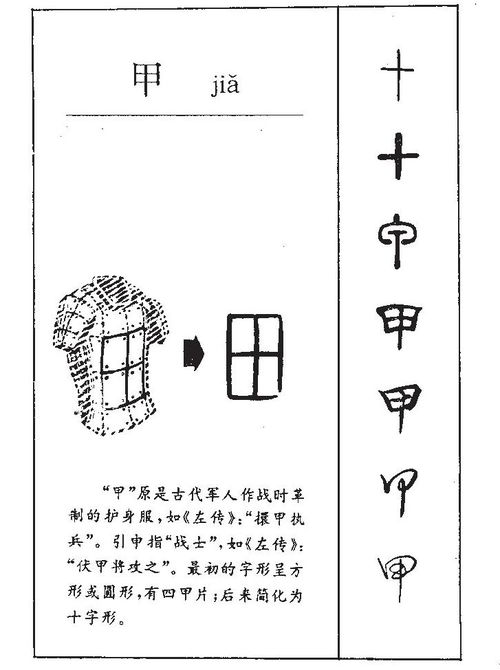 甲 jiǎ
“甲”原是古代军人作战时革
制的护身服,如《左传》:“擐甲执
兵”。引申指“战士”,如《左传》:
“伏甲将攻之”。最初的字形呈方
形或圆形,有四甲片;后来简化为
十字形。
十
十
甲
甲
甲
甲